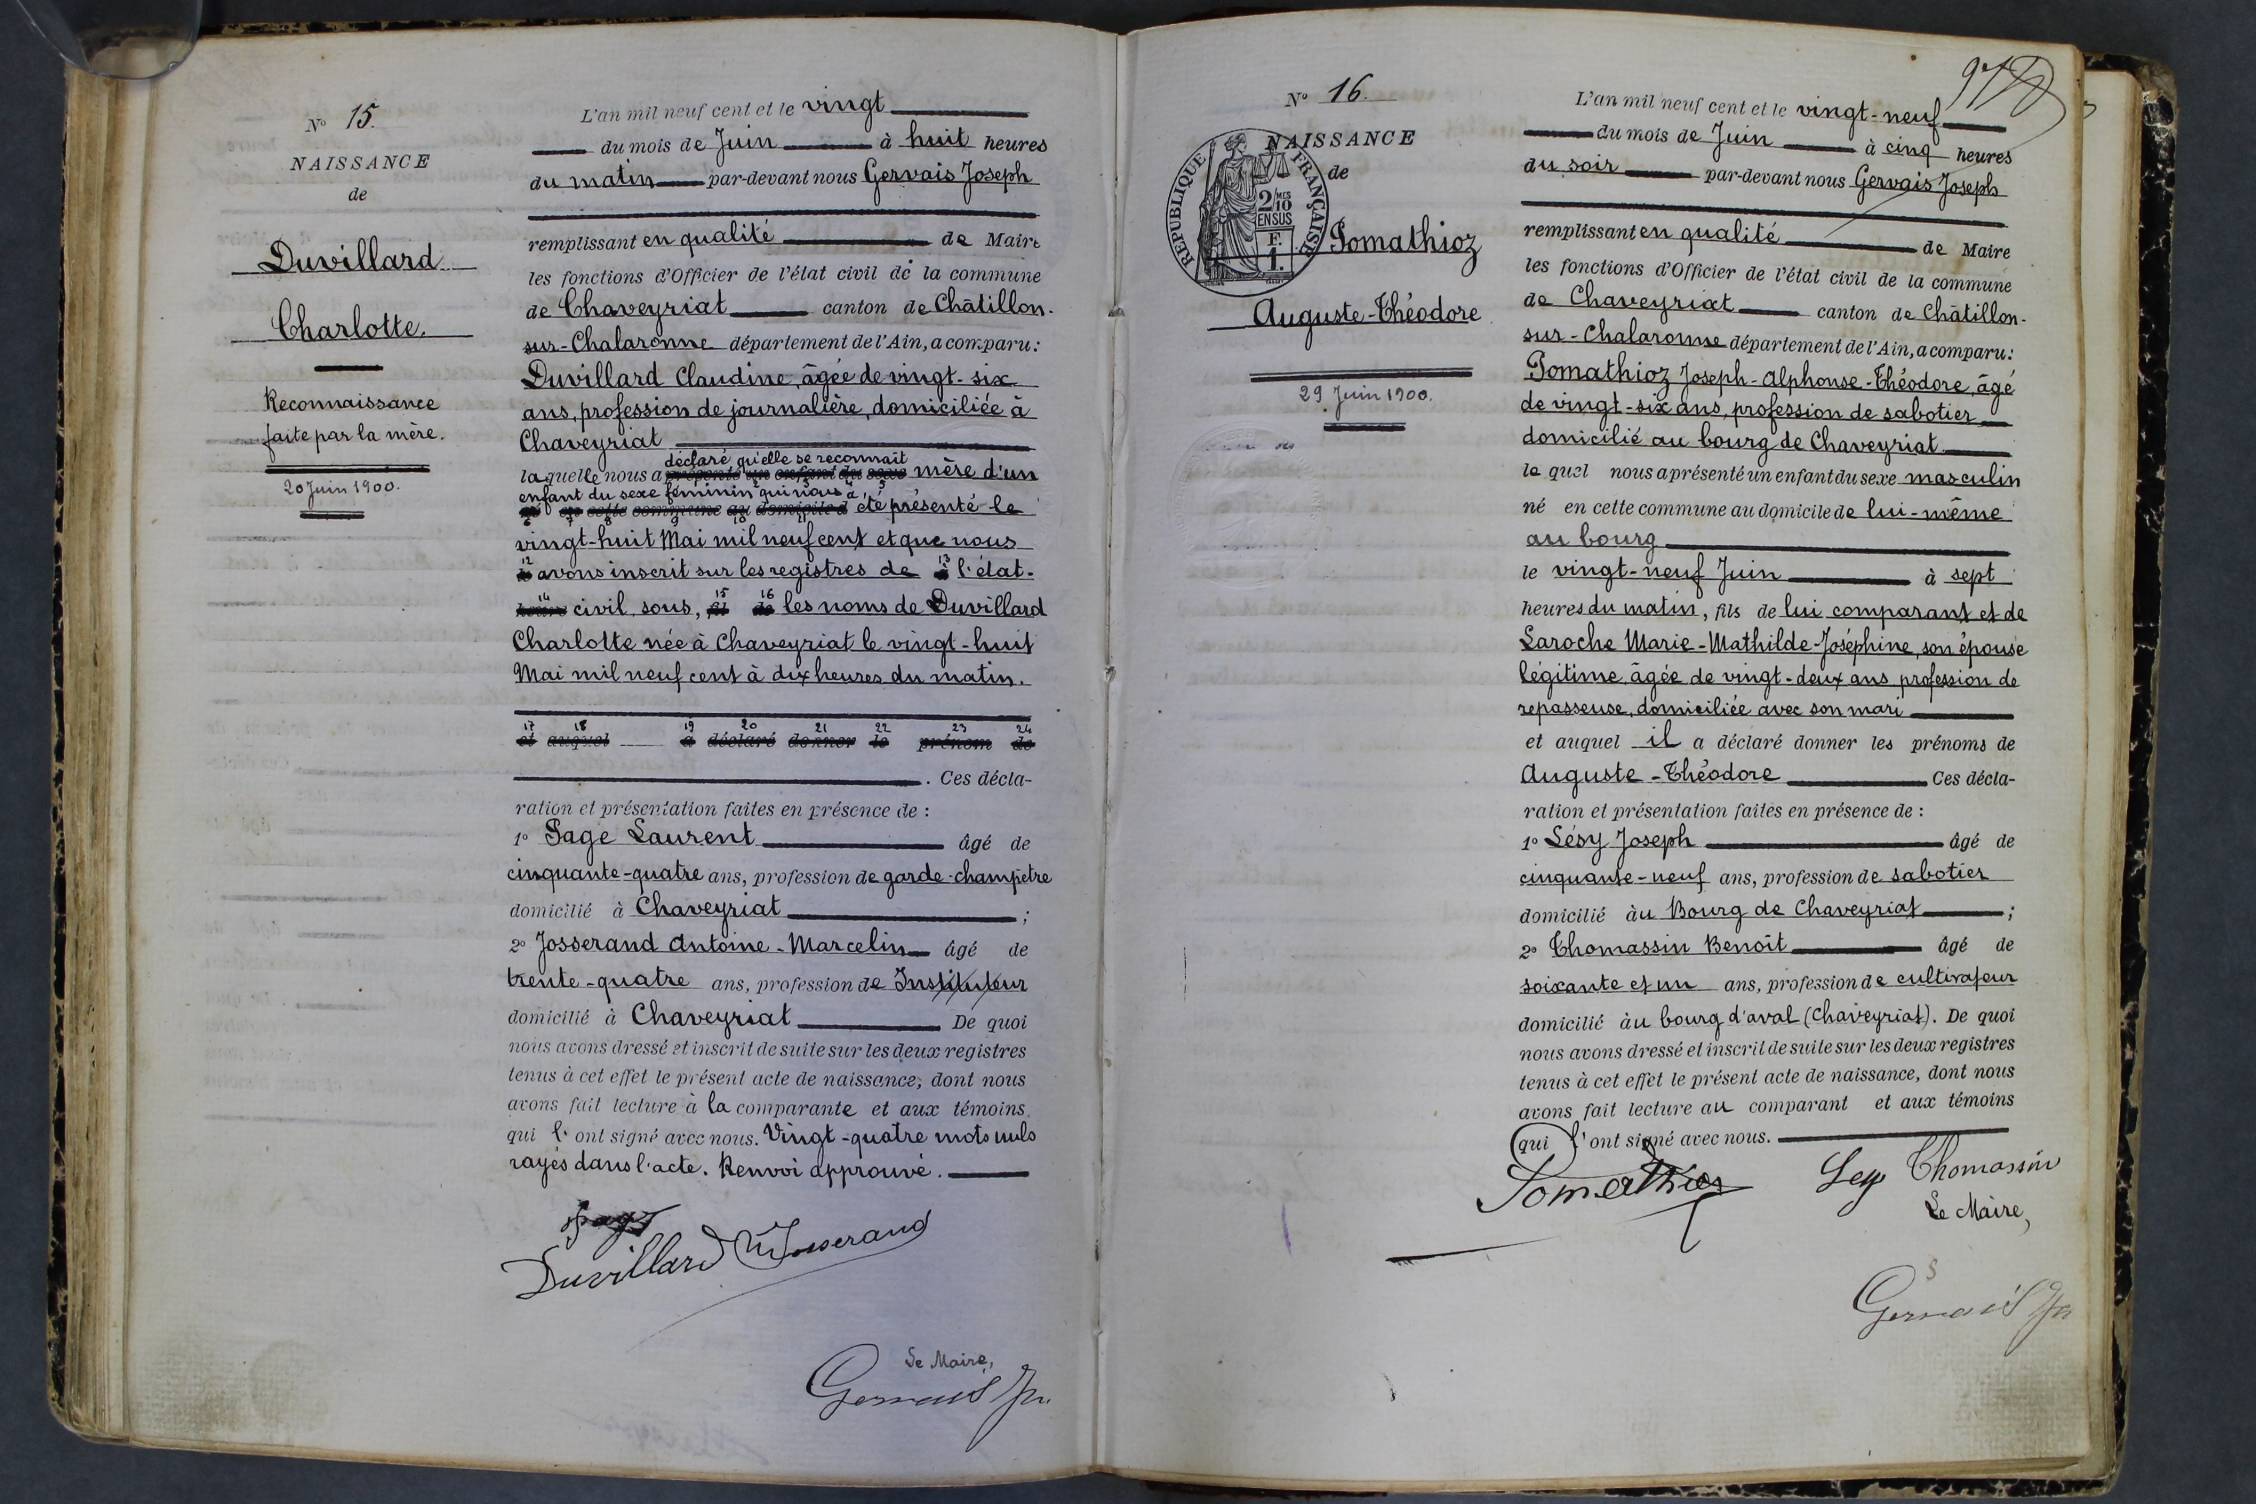 N° 15.
NAISSANCE
de
Duvillard
Charlotte.
Reconnaissance
faite par la mère.
20 Juin 1900.
L'an mil neuf cent et le vingt
du mois de Juin à huit heures
du matin par-devant nous Gervais Joseph
remplissant en qualité de Maire
les fonctions d'Officier de l'état civil de la commune
de Chaveyriat canton de Châtillon-
sur-Chalaronne département de l'Ain, a comparu:
Duvillard Claudine, âgée de vingt-six
ans, profession de journalière, domiciliée à
Chaveyriat
déclaré qu'elle se reconnaît
laquelle nous a présenté un enfant du sexe mère d'un
enfant du sexe féminin qui nous a
né en cette commune au domicile d été présenté le
6 7 8 9 10 11
vingt-huit Mai mil neuf cent et que nous
12 13
avons inscrit sur les registres de l'état-
14 15 16
heures civil, sous, et de les noms de Duvillard
Charlotte née à Chaveyriat le vingt-huit
Mai mil neuf cent à dix heures du matin.
17 18 19 20 21 22 23 24
et auquel a déclaré donner le prénom de
. Ces décla-
ration et présentation faites en présence de :
1° Page Laurent âgé de
cinquante-quatre ans, profession de garde-champêtre
domicilié à Chaveyriat ;
2° Josserand Antoine-Marcelin âgé de
trente-quatre ans, profession de Instituteur
domicilié à Chaveyriat De quoi
nous avons dressé et inscrit de suite sur les deux registres
tenus à cet effet le présent acte de naissance, dont nous
avons fait lecture à la comparante et aux témoins
qui l'ont signé avec nous. Vingt-quatre mots nuls
rayés dans l'acte. Renvoi approuvé.
page
Duvillard Josserand
Le Maire,
Gervais Jh
N° 16.
NAISSANCE
de
REPUBLIQUE FRANÇAISE
2/10 MES
EN SUS
F.
1.
Pomathioz
Auguste-Théodore
29 Juin 1900.
97
L'an mil neuf cent et le vingt-neuf
du mois de Juin à cinq heures
du soir par-devant nous Gervais Joseph
remplissant en qualité de Maire
les fonctions d'Officier de l'état civil de la commune
de Chaveyriat canton de Châtillon-
sur-Chalaronne département de l'Ain, a comparu:
Pomathioz Joseph-Alphonse-Théodore, âgé
de vingt-six ans, profession de sabotier
domicilié au bourg de Chaveyriat
lequel nous a présenté un enfant du sexe masculin
né en cette commune au domicile de lui-même
au bourg
le vingt-neuf Juin à sept
heures du matin, fils de lui comparant et de
Laroche Marie-Mathilde-Joséphine, son épouse
légitime, âgée de vingt-deux ans, profession de
repasseuse, domiciliée avec son mari
et auquel il a déclaré donner les prénoms de
Auguste-Théodore Ces décla-
ration et présentation faites en présence de :
1° Lésy Joseph âgé de
cinquante-neuf ans, profession de sabotier
domicilié àu Bourg de Chaveyriat ;
2° Thomassin Benoît âgé de
soixante et un ans, profession de cultivateur
domicilié àu bourg d'aval (Chaveyriat). De quoi
nous avons dressé et inscrit de suite sur les deux registres
tenus à cet effet le présent acte de naissance, dont nous
avons fait lecture au comparant et aux témoins
qui l'ont signé avec nous.
Pomathioz Lesy Thomassin
Le Maire,
Gervais Jh